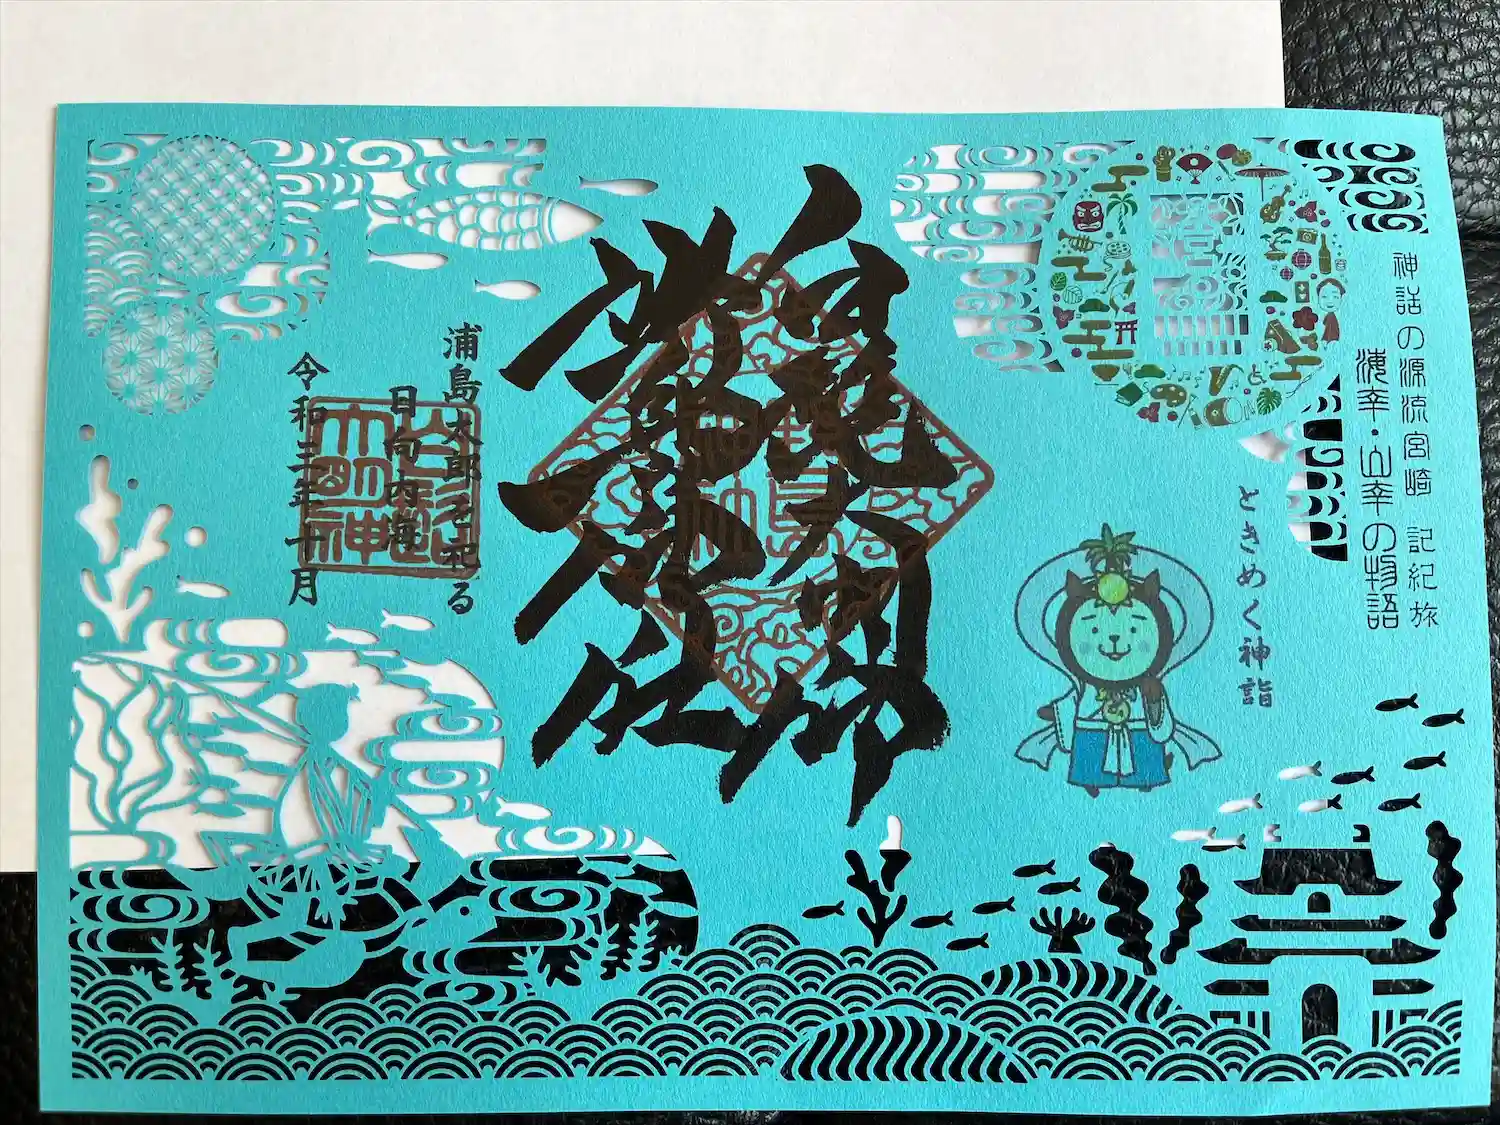 神話の源流宮崎 記紀旅
海幸・山幸の物語
ときめく神詣
白髭大明神
野島神社
浦島太郎を祀る
日向内海
令和三年十月